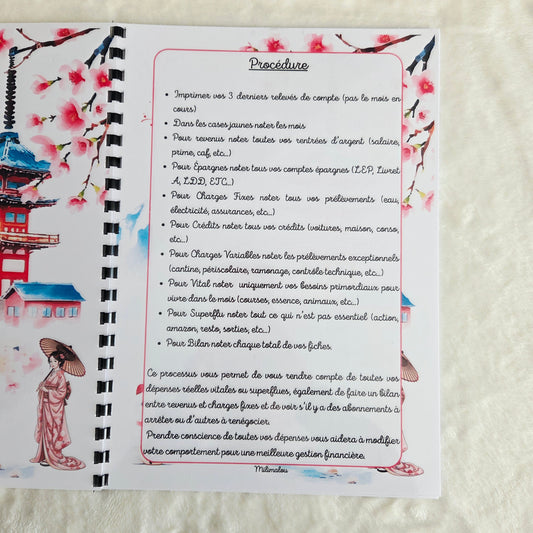 Procédure
• Imprimer vos 3 derniers relevés de compte (pas le mois en
cours)
• Dans les cases jaunes noter les mois
• Pour revenus noter toutes vos rentrées d'argent (salaire,
prime, caf, etc...)
• Pour Épargnes noter tous vos comptes épargnes (LEP, Livret
A, LDD, ETC...)
• Pour Charges Fixes noter tous vos prélèvements (eau,
électricité, assurances, etc...)
• Pour Crédits noter tous vos crédits (voitures, maison, conso,
etc...)
• Pour Charges Variables noter les prélèvements exceptionnels
(cantine, périscolaire, ramonage, contrôle technique, etc...)
• Pour Vital noter uniquement vos besoins primordiaux pour
vivre dans le mois (courses, essence, animaux, etc...)
• Pour Superflu noter tout ce qui n'est pas essentiel (action,
amazon, resto, sorties, etc...)
• Pour Bilan noter chaque total de vos fiches.
Ce processus vous permet de vous rendre compte de toutes vos
dépenses réelles vitales ou superflues, également de faire un bilan
entre revenus et charges fixes et de voir s'il y a des abonnements à
arrêter ou d'autres à renégocier.
Prendre conscience de toutes vos dépenses vous aidera à modifier
votre comportement pour une meilleure gestion financière.
Milimalou